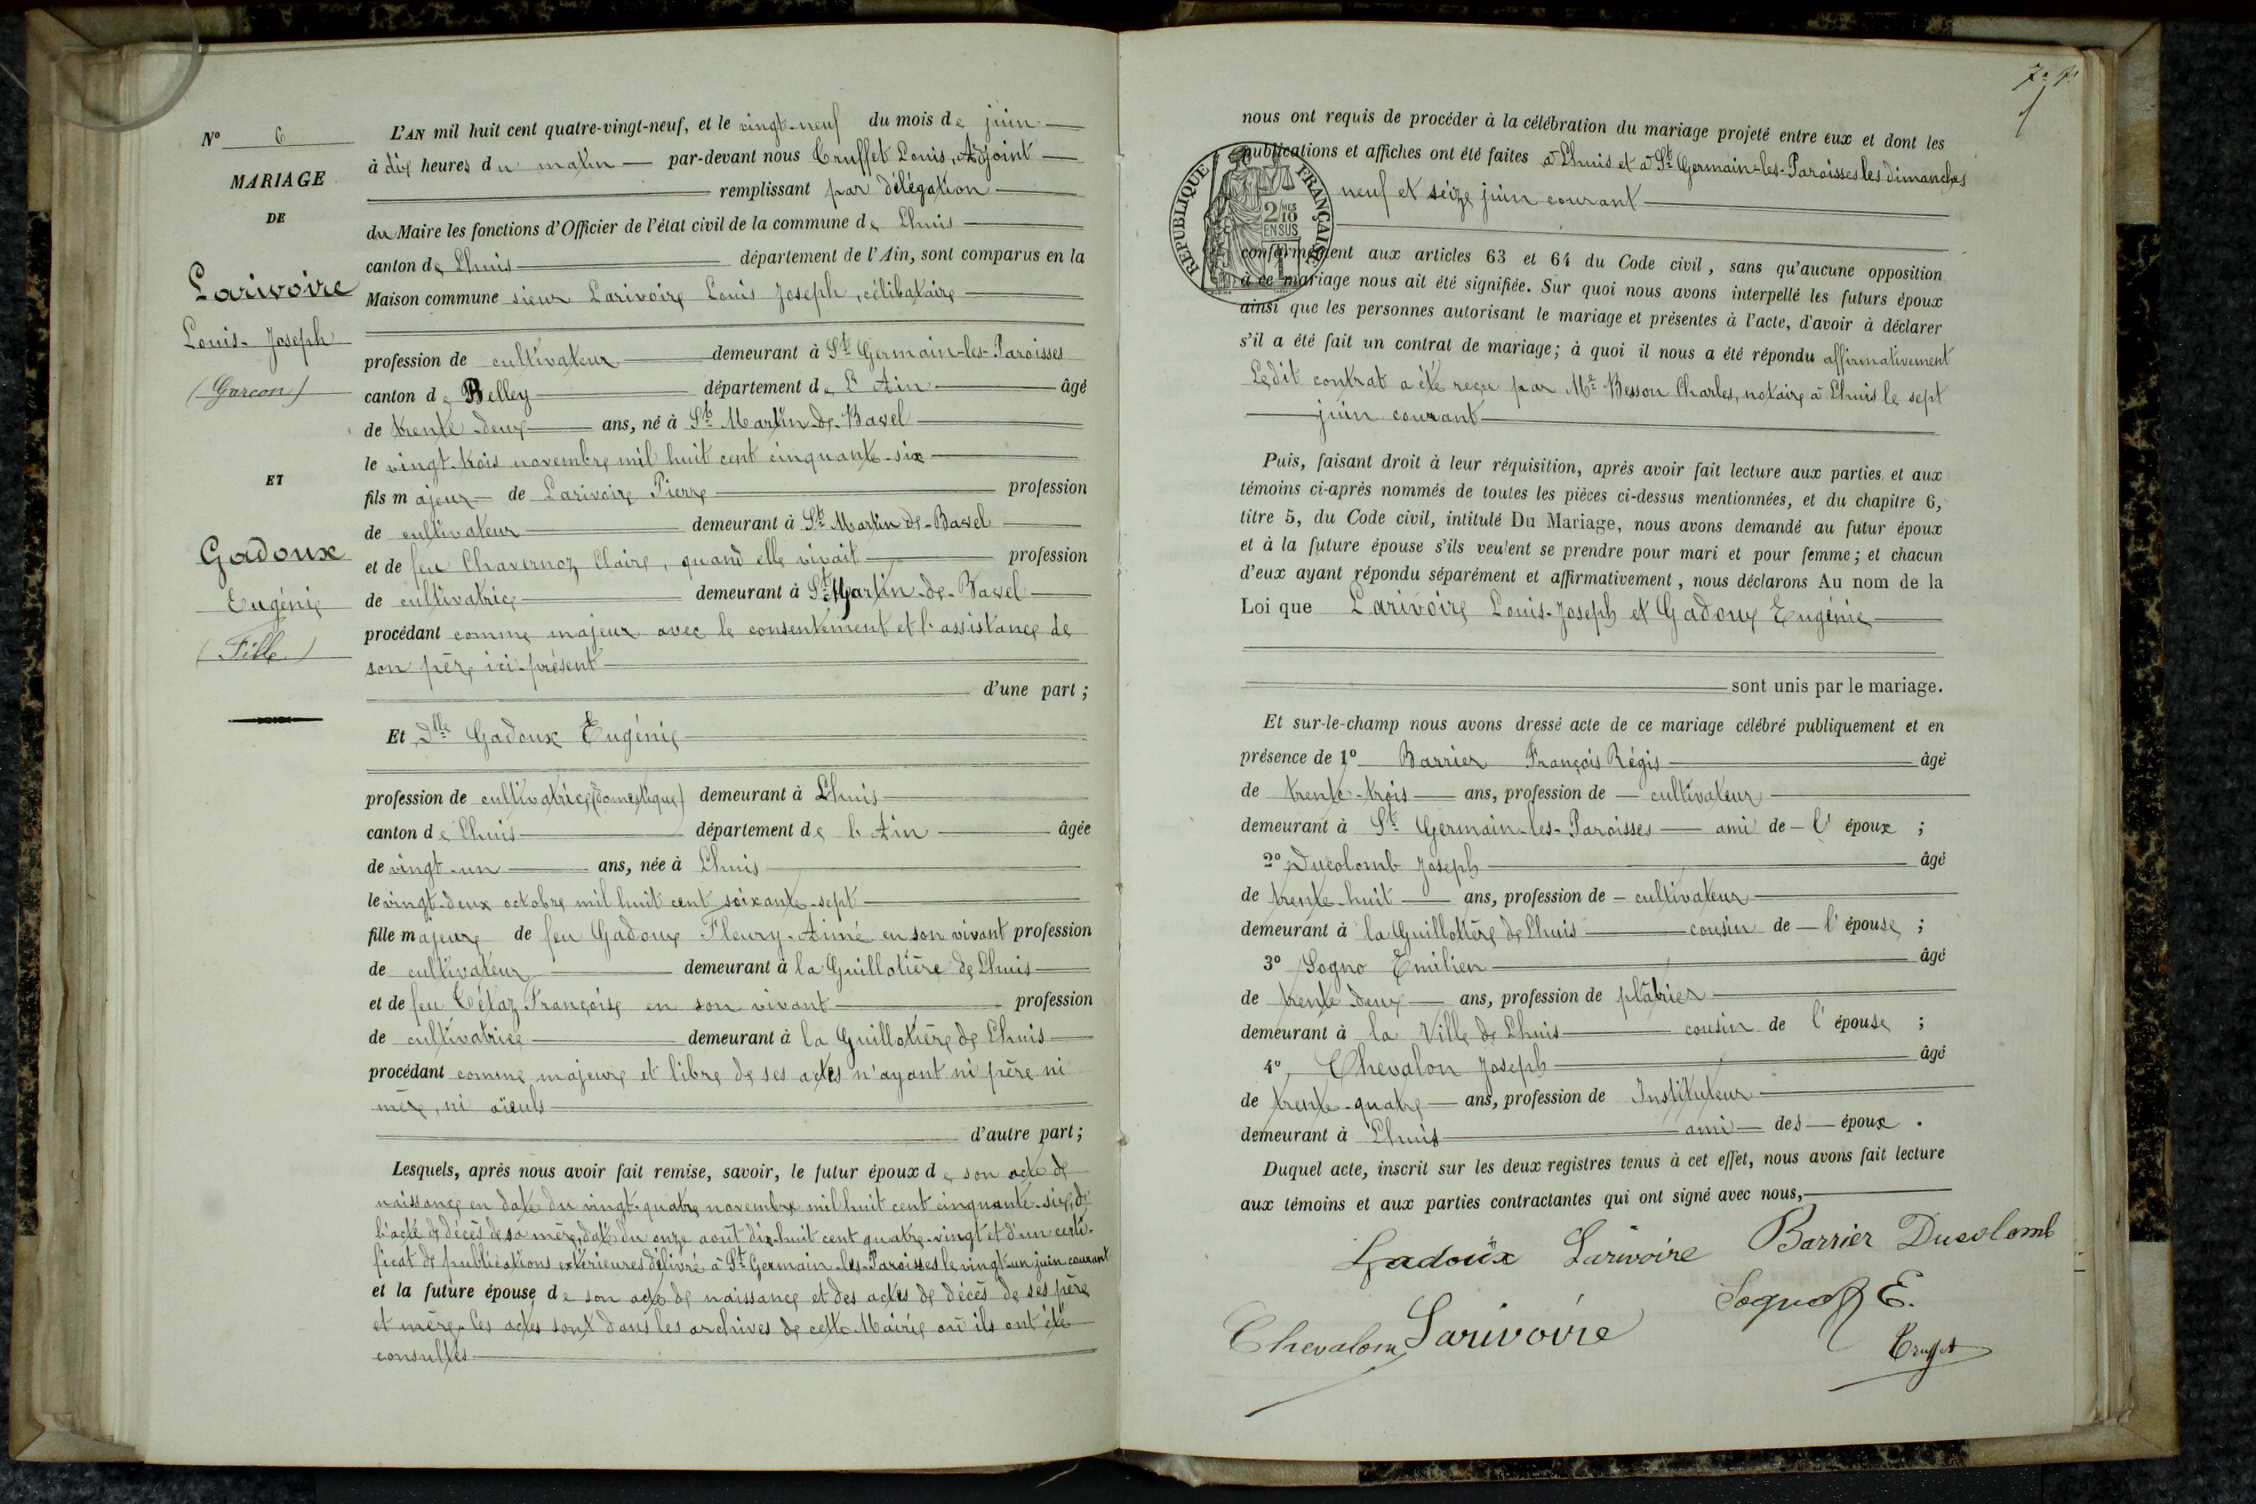 N° 6
MARIAGE
DE
Larivoire
Louis-Joseph
(Garcon)
ET
Gadoux
Eugénie
(Fille)
L'AN mil huit cent quatre-vingt-neuf, et le vingt-neuf du mois de juin
à dix heures du matin par-devant nous Truffet Louis, Adjoint
remplissant par délégation
du Maire les fonctions d'Officier de l'état civil de la commune de Lhuis
canton de Lhuis département de l'Ain, sont comparus en la
Maison commune sieur Larivoire Louis Joseph, célibataire
profession de cultivateur demeurant à St Germain-les-Paroisses
canton de Belley département de l'Ain âgé
de trente-deux ans, né à St Martin-de-Bavel
le vingt-trois novembre mil huit cent cinquante-six
fils majeur de Larivoire Pierre profession
de cultivateur demeurant à St Martin de-Bavel
et de feu Chavernoz Claire, quand elle vivait profession
de cultivatrice demeurant à St Martin-de-Bavel
procédant comme majeur avec le consentement et l'assistance de
son père ici-présent
d'une part ;
Et Dlle Gadoux Eugénie
profession de cultivatrice (domestique) demeurant à Lhuis
canton de Lhuis département de l'Ain âgée
de vingt-un ans, née à Lhuis
le vingt-deux octobre mil huit cent soixante-sept
fille majeure de feu Gadoux Fleury-Aimé en son vivant profession
de cultivateur demeurant à la Guillotière de Lhuis
et de feu Tétaz Françoise en son vivant profession
de cultivatrice demeurant à la Guillotière de Lhuis
procédant comme majeure et libre de ses actes n'ayant ni père ni
mère, ni aïeuls
d'autre part ;
Lesquels, après nous avoir fait remise, savoir, le futur époux de son acte de
naissance en date du vingt-quatre novembre mil huit cent cinquante-six, de
l'acte de décès de sa mère, daté du onze août dix-huit cent quatre-vingt et d'un certi-
ficat de publications extérieures délivré à St Germain-les-Paroisses le vingt-un juin courant
et la future épouse de son acte de naissance et des actes de décès de ses père
et mère. Ces actes sont dans les archives de cette Mairie où ils ont été
consultés
nous ont requis de procéder à la célébration du mariage projeté entre eux et dont les
publications et affiches ont été faites à Lhuis et à St Germain-les-Paroisses les dimanches
neuf et seize juin courant
RÉPUBLIQUE FRANÇAISE
2 MES 10
EN SUS
conformément aux articles 63 et 64 du Code civil, sans qu'aucune opposition
à ce mariage nous ait été signifiée. Sur quoi nous avons interpellé les futurs époux
ainsi que les personnes autorisant le mariage et présentes à l'acte, d'avoir à déclarer
s'il a été fait un contrat de mariage ; à quoi il nous a été répondu affirmativement
Ledit contrat a été reçu par Me Besson Charles, notaire à Lhuis le sept
juin courant
Puis, faisant droit à leur réquisition, après avoir fait lecture aux parties et aux
témoins ci-après nommés de toutes les pièces ci-dessus mentionnées, et du chapitre 6,
titre 5, du Code civil, intitulé Du Mariage, nous avons demandé au futur époux
et à la future épouse s'ils veulent se prendre pour mari et pour femme ; et chacun
d'eux ayant répondu séparément et affirmativement, nous déclarons Au nom de la
Loi que Larivoire Louis-Joseph et Gadoux Eugénie
sont unis par le mariage.
Et sur-le-champ nous avons dressé acte de ce mariage célébré publiquement et en
présence de 1° Barrier François Régis âgé
de trente-trois ans, profession de cultivateur
demeurant à St Germain-les-Paroisses ami de l'époux ;
2° Ducolomb Joseph âgé
de trente-huit ans, profession de cultivateur
demeurant à la Guillotière de Lhuis cousin de l'épouse ;
3° Sogno Emilien âgé
de trente deux ans, profession de plâtrier
demeurant à la Ville de Lhuis cousin de l'épouse ;
4° Chevalon Joseph âgé
de trente-quatre ans, profession de Instituteur
demeurant à Lhuis ami des époux.
Duquel acte, inscrit sur les deux registres tenus à cet effet, nous avons fait lecture
aux témoins et aux parties contractantes qui ont signé avec nous,
Gadoux Larivoire Barrier Ducolomb
Chevalon Larivoire Sogno E.
Truffet